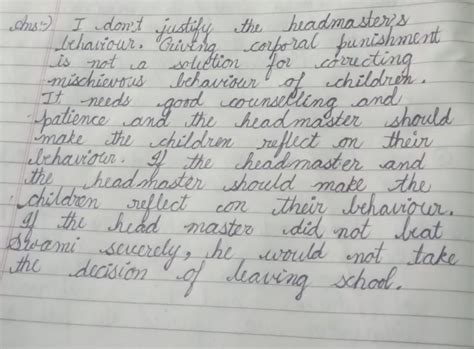 Ans:-) I don't justify the headmaster's
behaviour. Giving corporal punishment
is not a solution for correcting
mischievous behaviour of children.
It needs good counselling and
patience and the head master should
make the children reflect on their
behaviour. If the headmaster and
the headmaster should make the
children reflect on their behaviour.
If the head master did not beat
Swami severely, he would not take
the decision of leaving school.